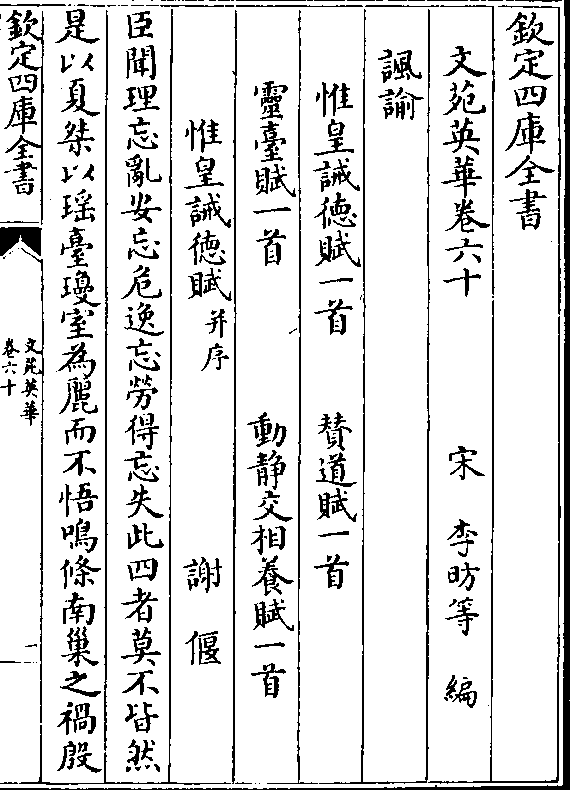 欽定四庫全書
文苑英華卷六十
宋　李昉等　編
諷諭
惟皇誡德賦一首　賛道賦一首
靈臺賦一首　動静交相養賦一首
惟皇誡德賦并序　謝偃
臣聞理忘亂安忘危逸忘勞得忘失此四者莫不皆然
是以夏桀以瑶臺瓊室為麗而不悟鳴條南巢之禍殷
欽定四庫全書
文苑英華
卷六十
一